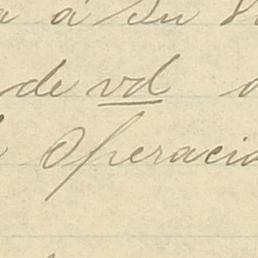 a á Su
de vd
Operacio